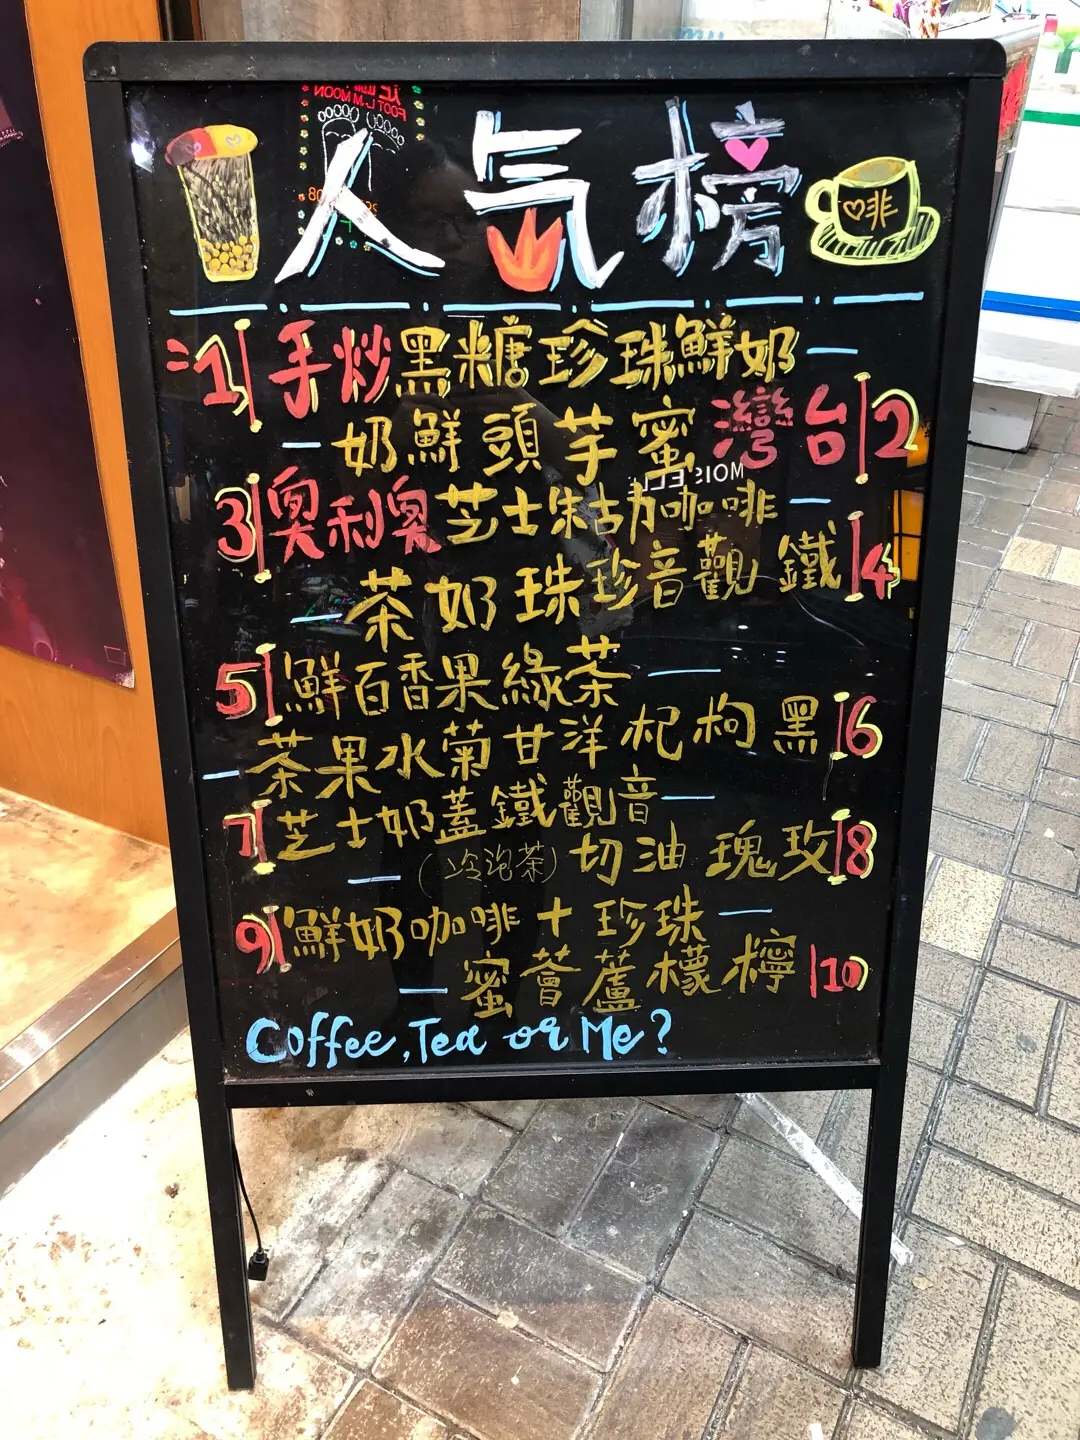 人气榜
啡
1 手炒黑糖珍珠鮮奶
2 台灣蜜芋頭鮮奶
3 奧利奧芝士朱古力咖啡
4 鐵觀音珍珠奶茶
5 鮮百香果綠茶
6 黑枸杞洋甘菊水果茶
7 芝士奶蓋鐵觀音
8 玫瑰油切 (冷泡茶)
9 鮮奶咖啡+珍珠
10 檸檬蘆薈蜜
Coffee, Tea or Me?